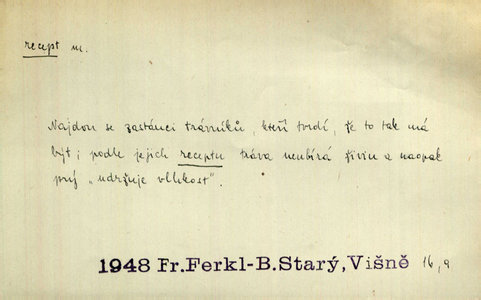 recept m.
Najdou se zastánci trávníků, kteří tvrdí, že to tak má
být; podle jejich receptu tráva neubírá živin a naopak
prý „udržuje vlhkost".
1948 Fr.Ferkl-B.Starý,Višně 16,9